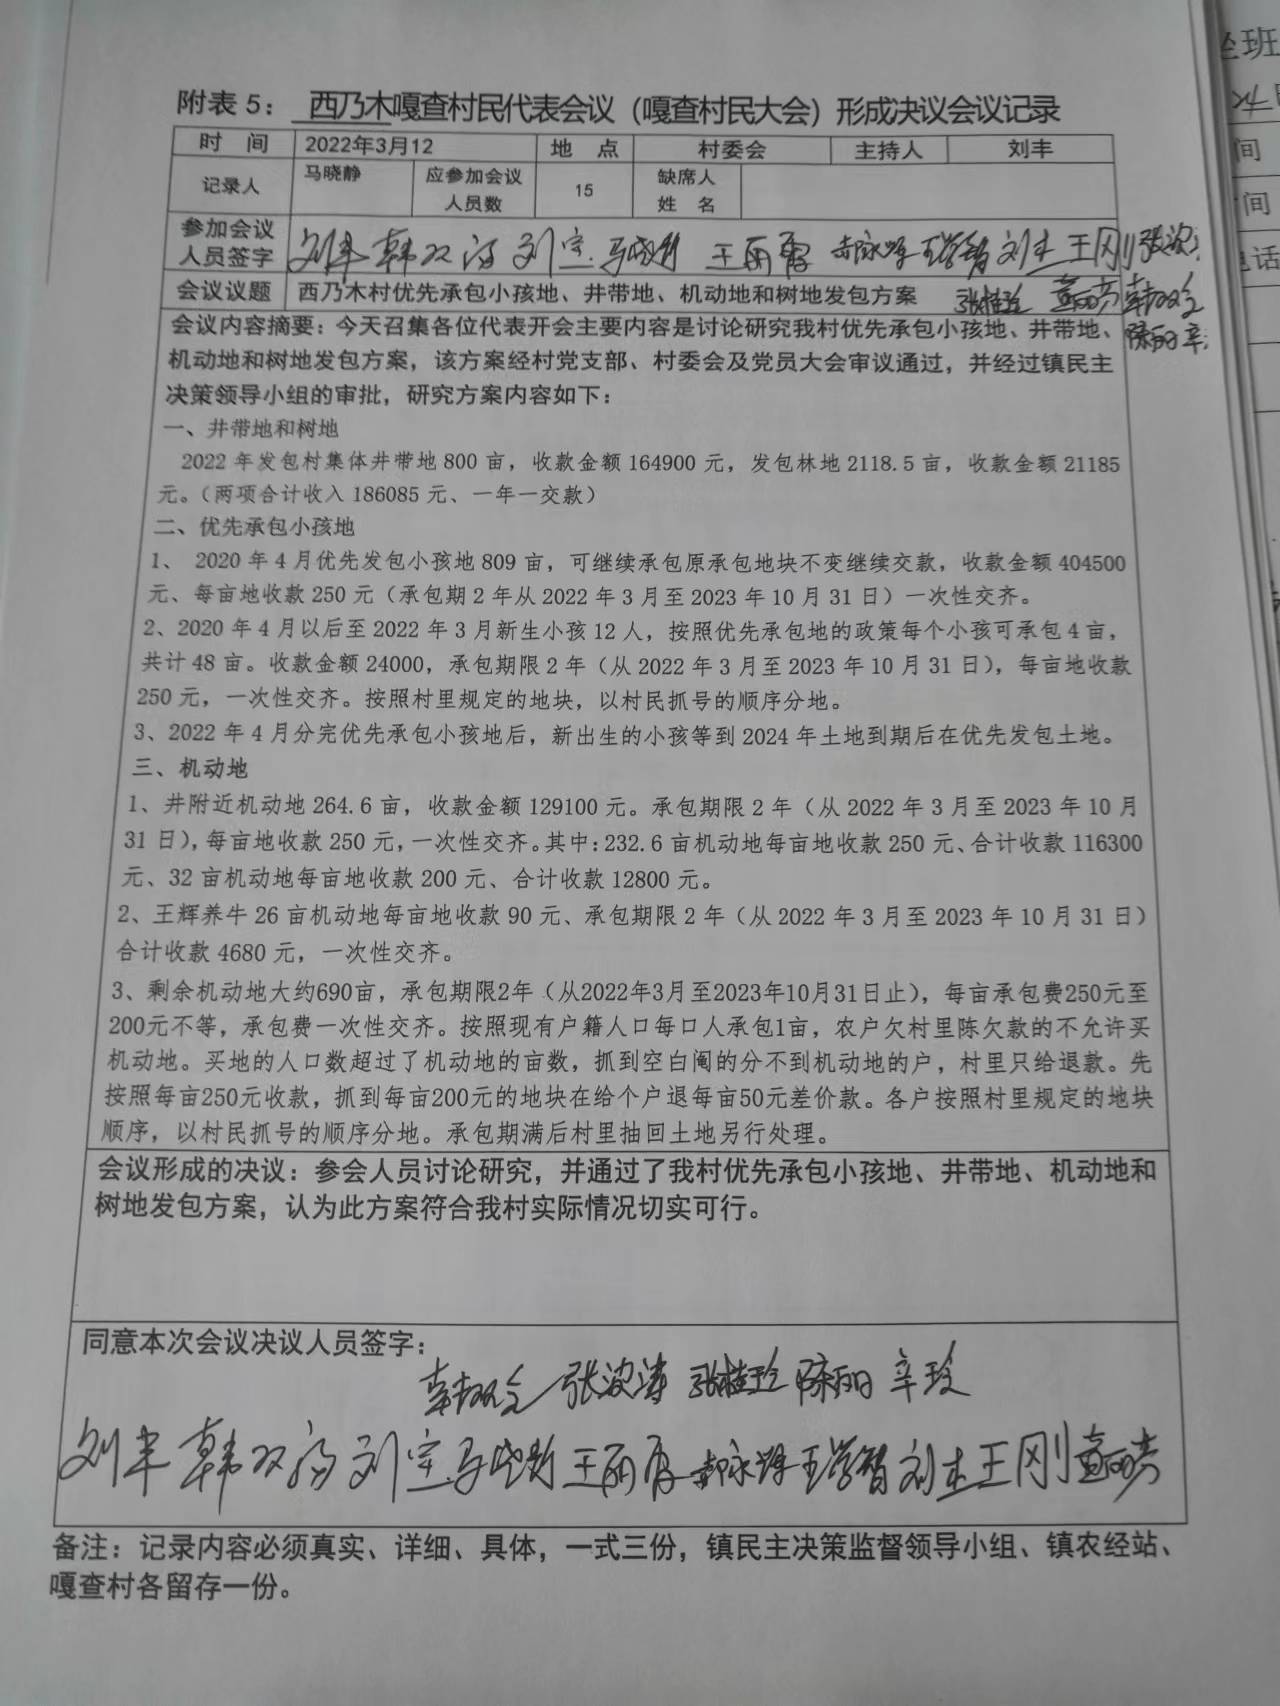 附表 5： 西乃木嘎查村民代表会议（嘎查村民大会）形成决议会议记录
时 间 2022年3月12 地 点 村委会 主持人 刘丰
记录人 马晓静 应参加会议人员数 15 缺席人姓 名
参加会议人员签字 刘丰 韩双 刘宝 王丽 王学智 刘杰 王刚 张
会议议题 西乃木村优先承包小孩地、井带地、机动地和树地发包方案 张桂玲
陈丽 辛
会议内容摘要：今天召集各位代表开会主要内容是讨论研究我村优先承包小孩地、井带地、
机动地和树地发包方案，该方案经村党支部、村委会及党员大会审议通过，并经过镇民主
决策领导小组的审批，研究方案内容如下：
一、井带地和树地
2022 年发包村集体井带地 800 亩，收款金额 164900 元，发包林地 2118.5 亩，收款金额 21185
元。（两项合计收入 186085 元、一年一交款）
二、优先承包小孩地
1、 2020 年 4 月优先发包小孩地 809 亩，可继续承包原承包地块不变继续交款，收款金额 404500
元、每亩地收款 250 元（承包期 2 年从 2022 年 3 月至 2023 年 10 月 31 日）一次性交齐。
2、2020 年 4 月以后至 2022 年 3 月新生小孩 12 人，按照优先承包地的政策每个小孩可承包 4 亩，
共计 48 亩。收款金额 24000，承包期限 2 年（从 2022 年 3 月至 2023 年 10 月 31 日），每亩地收款
250 元，一次性交齐。按照村里规定的地块，以村民抓号的顺序分地。
3、2022 年 4 月分完优先承包小孩地后，新出生的小孩等到 2024 年土地到期后在优先发包土地。
三、机动地
1、井附近机动地 264.6 亩，收款金额 129100 元。承包期限 2 年（从 2022 年 3 月至 2023 年 10 月
31 日），每亩地收款 250 元，一次性交齐。其中：232.6 亩机动地每亩地收款 250 元、合计收款 116300
元、32 亩机动地每亩地收款 200 元、合计收款 12800 元。
2、王辉养牛 26 亩机动地每亩地收款 90 元、承包期限 2 年（从 2022 年 3 月至 2023 年 10 月 31 日）
合计收款 4680 元，一次性交齐。
3、剩余机动地大约690亩，承包期限2年（从2022年3月至2023年10月31日止），每亩承包费250元至
200元不等，承包费一次性交齐。按照现有户籍人口每口人承包1亩，农户欠村里陈欠款的不允许买
机动地。买地的人口数超过了机动地的亩数，抓到空白阄的分不到机动地的户，村里只给退款。先
按照每亩250元收款，抓到每亩200元的地块在给个户退每亩50元差价款。各户按照村里规定的地块
顺序，以村民抓号的顺序分地。承包期满后村里抽回土地另行处理。
会议形成的决议：参会人员讨论研究，并通过了我村优先承包小孩地、井带地、机动地和
树地发包方案，认为此方案符合我村实际情况切实可行。
同意本次会议决议人员签字：
张桂玲 陈丽 辛玲
刘丰 韩双 刘宝 王丽 王学智 刘杰 王刚
备注：记录内容必须真实、详细、具体，一式三份，镇民主决策监督领导小组、镇农经站、
嘎查村各留存一份。